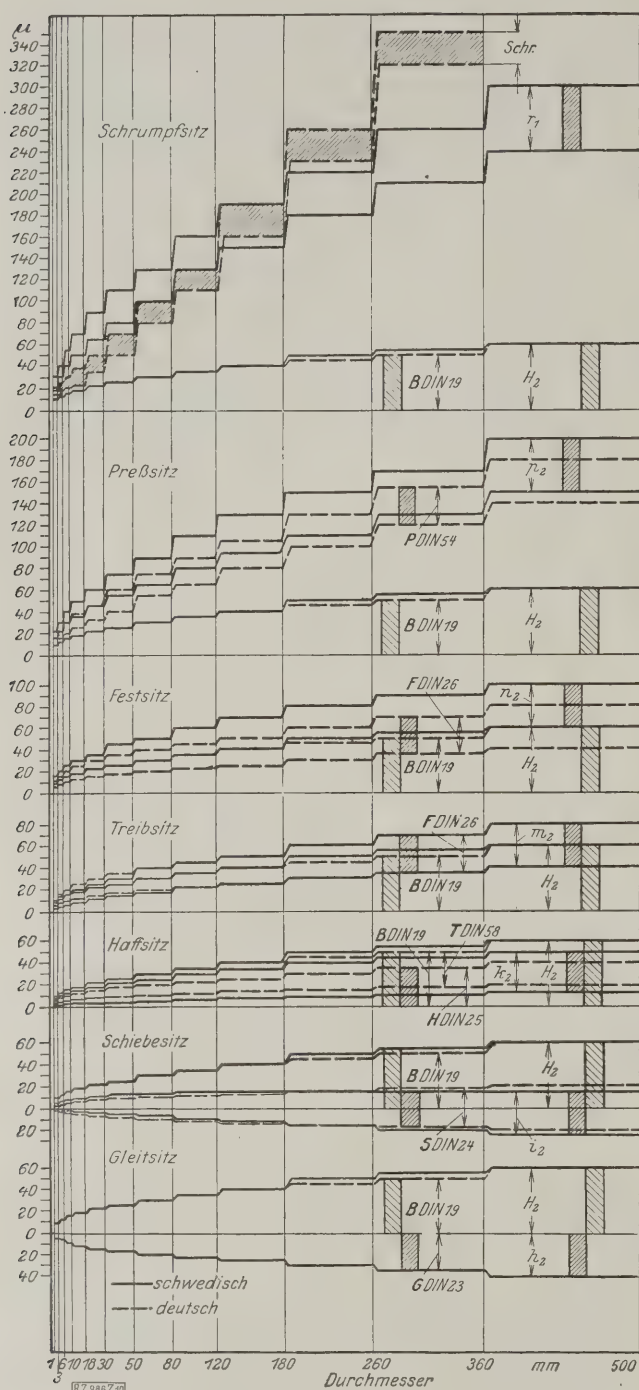 µ
340
320
300
280
260
240
220
200
180
160
140
120
100
80
60
40
20
0
Schrumpfsitz
Schr.
r₁
BDIN19
H₂
200
180
160
140
120
100
80
60
40
20
0
Preßsitz
p₂
PDIN54
BDIN19
H₂
100
80
60
40
20
0
Festsitz
FDIN26
n₂
BDIN19
H₂
80
60
40
20
0
Treibsitz
FDIN26
m₂
BDIN19
H₂
60
40
20
0
Haftsitz
BDIN19
TDIN58
k₂
H₂
HDIN25
60
40
20
0
20
Schiebesitz
BDIN19
H₂
SDIN24
i₂
60
40
20
0
20
40
Gleitsitz
BDIN19
H₂
GDIN23
h₂
schwedisch
deutsch
1 3 6 10 18 30 50 80 120 180 260 360 mm 500
Durchmesser